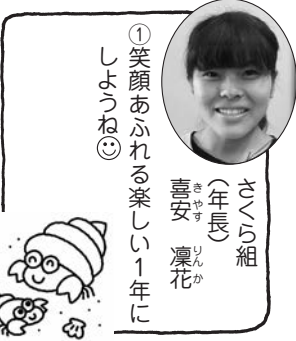 さくら組
(年長)
喜安 凜花
きやす りんか
①笑顔あふれる楽しい1年に
しようね☺